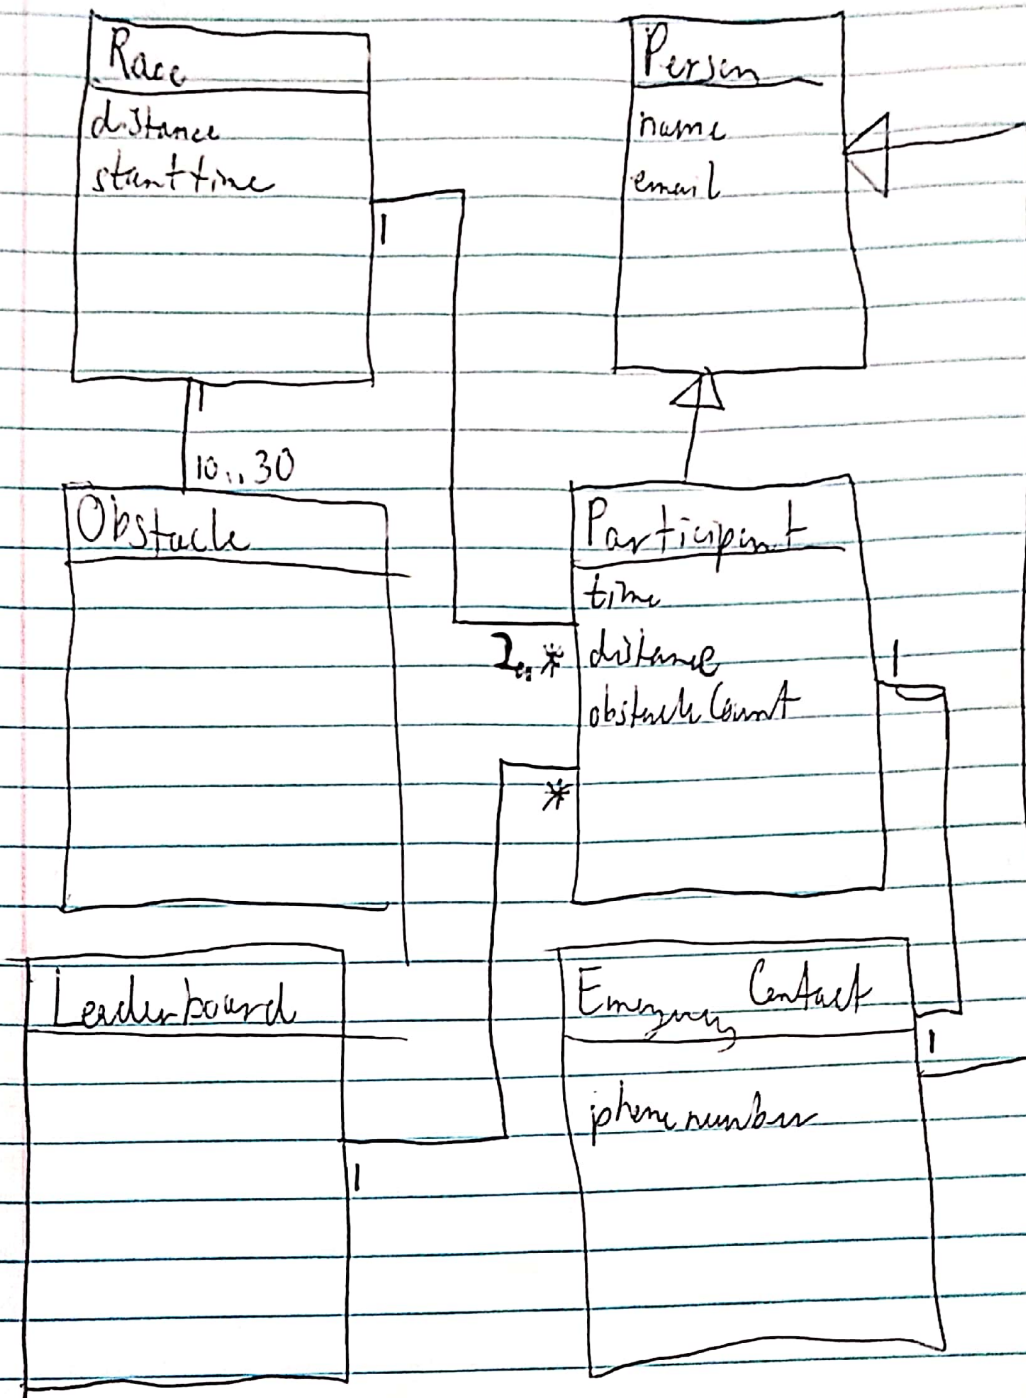 Race
distance
starttime
1
1
10..30
Obstacle
Person
name
email
Participant
time
distance
obstacleCount
2..*
*
1
Leaderboard
1
Emergency Contact
1
phonenumber